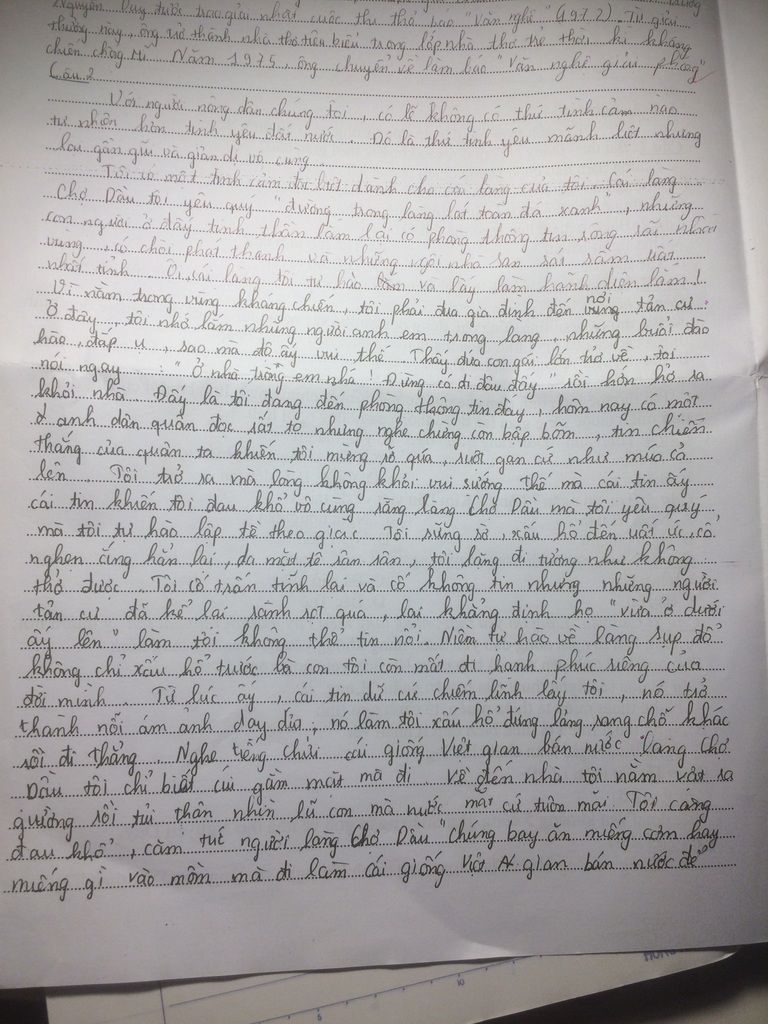 Nguyễn Duy được trao giải nhất cuộc thi thơ báo "Văn nghệ" (1972). Từ giải
thưởng này, ông trở thành nhà thơ tiêu biểu trong lớp nhà thơ trẻ thời kì kháng
chiến chống Mĩ. Năm 1975, ông chuyển về làm báo "Văn nghệ giải phóng"
Câu 2
Với người nông dân chúng tôi, có lẽ không có thứ tình cảm nào
tự nhiên hơn tình yêu đất nước. Đó là thứ tình yêu mãnh liệt nhưng
lại gần gũi và giản dị vô cùng
Tôi có một tình cảm đặc biệt dành cho cái làng của tôi. Cái làng
Chợ Dầu tôi yêu quý "đường trong làng lát toàn đá xanh", những
con người ở đây tinh thần lắm lại có phòng thông tin rộng rãi nhất
vùng, có chòi phát thanh và những ngôi nhà san sát sầm uất
nhất tỉnh. Ôi cái làng tôi tự hào lắm và lấy làm hãnh diện lắm!
Vì nằm trong vùng kháng chiến, tôi phải đưa gia đình đến nơi tản cư
Ở đây, tôi nhớ lắm những người anh em trong làng, những buổi đào
hào, đắp ụ, sao mà độ ấy vui thế. Thấy đứa con gái lớn trở về, tôi
nói ngay: "Ở nhà trông em nhá! Đừng có đi đâu đấy" rồi hớn hở ra
khỏi nhà. Đấy là tôi đang đến phòng thông tin đấy, hôm nay có một
anh dân quân đọc rất to nhưng nghe chừng còn bập bõm, tin chiến
thắng của quân ta khiến tôi mừng rỡ quá, ruột gan cứ như múa cả
lên. Tôi trở ra mà lòng không khỏi vui sướng thế mà cái tin ấy
cái tin khiến tôi đau khổ vô cùng rằng làng Chợ Dầu mà tôi yêu quý
mà tôi tự hào lập tề theo giặc. Tôi sững sờ, xấu hổ đến uất ức, cổ
nghẹn ắng hẳn lại, da mặt tê rân rân, tôi lặng đi tưởng như không
thở được. Tôi cố trấn tĩnh lại và cố không tin nhưng những người
tản cư đã kể lại rành rọt quá, lại khẳng định họ "vừa ở dưới
ấy lên" làm tôi không thể tin nổi. Niềm tự hào về làng sụp đổ
không chỉ xấu hổ trước bà con tôi còn mất đi hạnh phúc riêng của
đời mình. Từ lúc ấy, cái tin dữ cứ chiếm lĩnh lấy tôi, nó trở
thành nỗi ám ảnh day dứa, nó làm tôi xấu hổ đứng lảng sang chỗ khác
rồi đi thẳng. Nghe tiếng chửi cái giống Việt gian bán nước làng Chợ
Dầu tôi chỉ biết cúi gằm mặt mà đi. Về đến nhà tôi nằm vật ra
giường rồi tủi thân nhìn lũ con mà nước mắt cứ tuôn mãi. Tôi càng
đau khổ, căm tức người làng Chợ Dầu "chúng bay ăn miếng cơm hay
miếng gì vào mồm mà đi làm cái giống Việt gian bán nước để